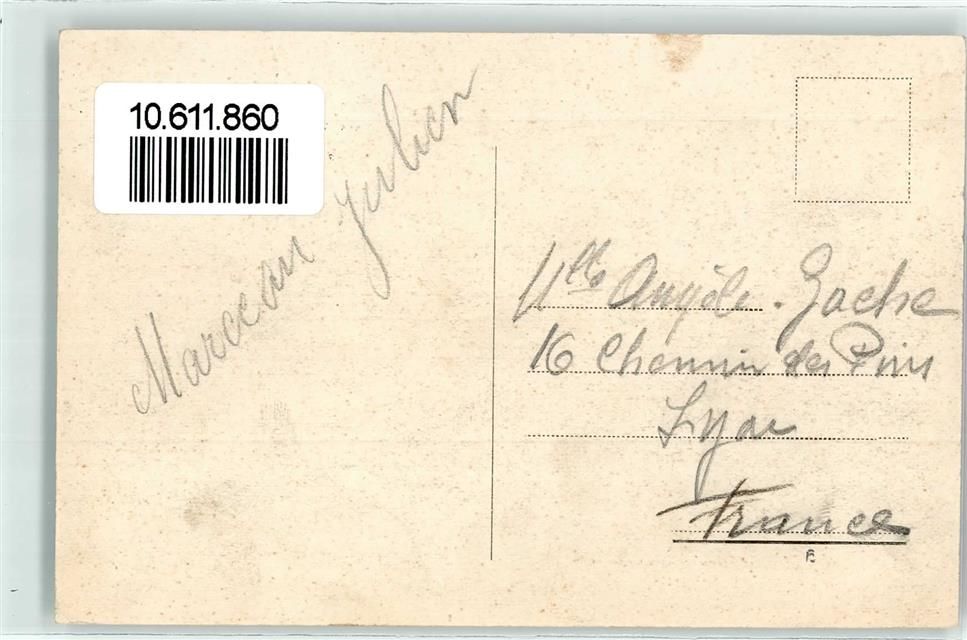 10.611.860
Marceau Julien
Mlle Angèle Gache
16 Chemin des Pins
Lyon
France